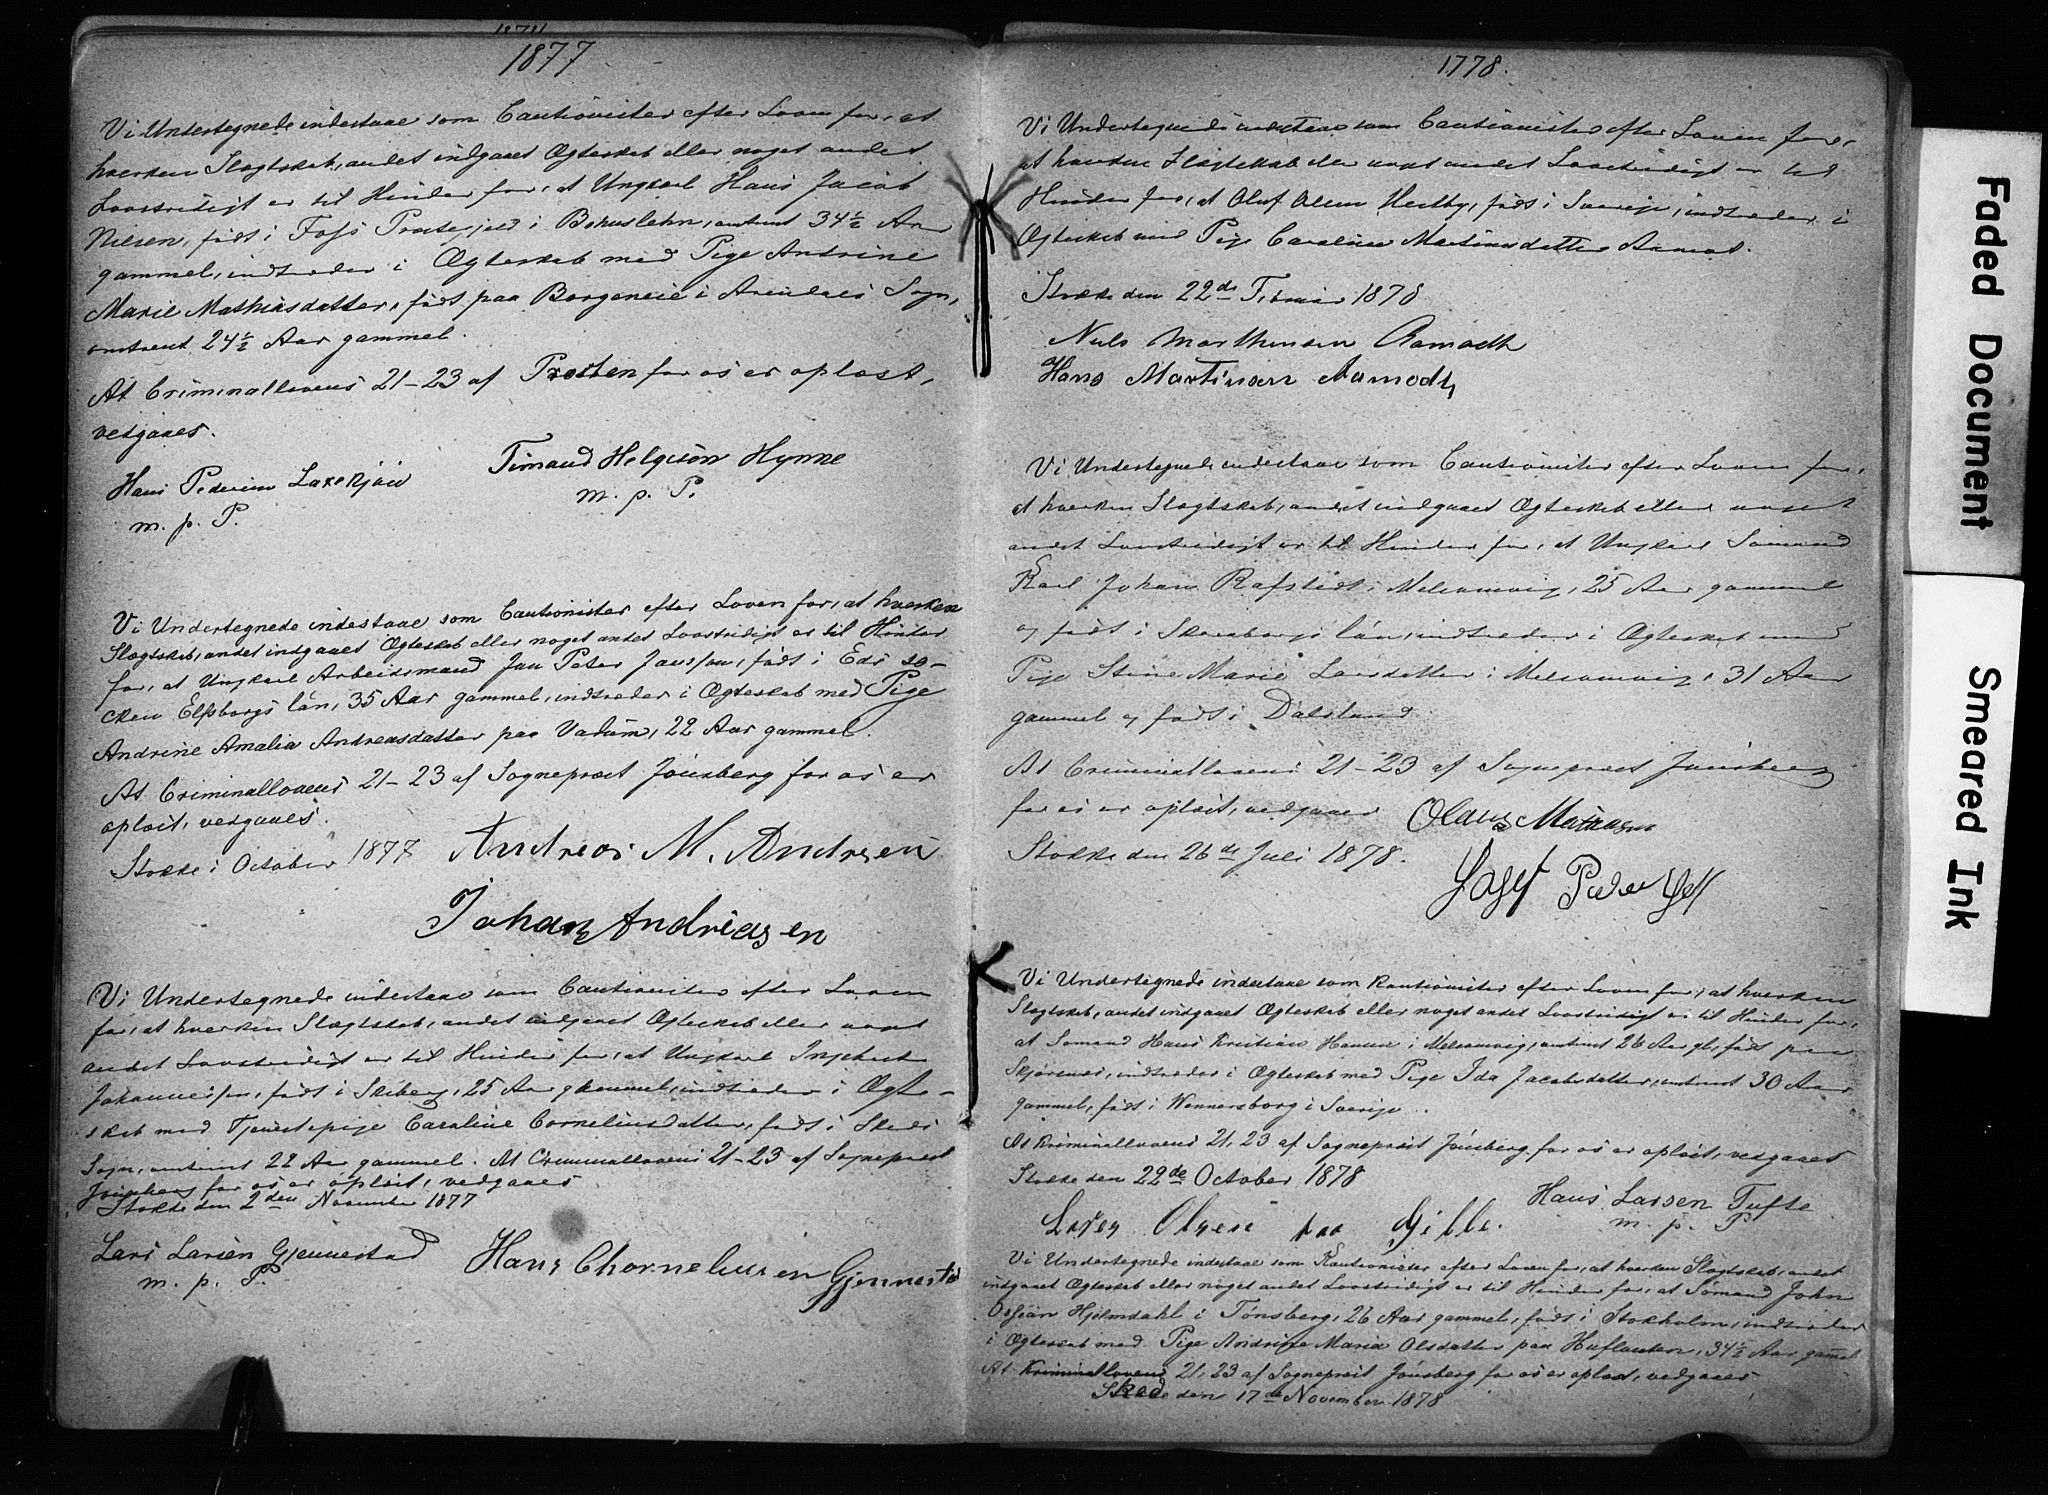 1877
Vi Undertegnede indestaae som Cautionister efter Loven for, at
hverken Slægtskab, andet indgaaet Ægteskab eller noget andet
Lovstridigt er til Hinder for, at Ungkarl Hans Jacob
Nilsen, født i Foss Præstegjeld i Bohuslehn, omtrent 34½ Aar
gammel, indtræder i Ægteskab med Pige Andrine
Marie Mathiasdatter, født paa Borgeneie i Sogn,
omtrent 24½ Aar gammel.
At Criminallovens 21-23 af Præsten for os er oplæst,
vedgaaes.
Timand Helgeson Hynne
m. p. P.
Hans Pedersen
m. p. P.
Vi Undertegnede indestaae som Cautionister efter Loven for, at hverken
Slægtskab, andet indgaaet Ægteskab eller noget andet Lovstridigt er til Hinder
for, at Ungkarl Arbeidsmand Jan Peter Janssson, født i Eds so-
cken Elfsborgs län, 35 Aar gammel, indtræder i Ægteskab med Pige
Andrine Amalia Andreasdatter paa Vadum, 22 Aar gammel.
At Criminallovens 21-23 af Sogneprest Jönsberg for os er
oplæst, vedgaaes.
Stokke i October 1877 Andreas M. Andresen
Johan Andreasen
Vi Undertegnede indestaae som Cautionister efter Loven
for, at hverken Slægtskab, andet indgaaet Ægteskab eller noget
andet Lovstridigt er til Hinder for, at Ungkarl Ingebret
Johannessen, født i Skiberg, 25 Aar gammel, indtræder i Ægte-
skab med Tjenestepige Caroline Corneliusdatter, født i Skeds
Sogn, omtrent 22 Aar gammel. At Criminallovens 21-23 af Sogneprest
Jönsberg for os er oplæst, vedgaaes
Stokke den 2den November 1877
Lars Larsen Gjennestad
m. p. P.
Hans Chorneliussen Gjennestad
1778.
Vi Undertegnede indestaae som Cautionister efter Loven for,
at hverken Slægtskab eller noget andet Lovstridigt er til
Hinder for, at Oluf Olsen Hedby, født i Sverige, indtræder i
Ægteskab med Pige Caroline Martinsdatter Aamot.
Stokke den 22de Februar 1878
Nils Marthinsen Aamodt
Hans Martinsen Aamodt
Vi Undertegnede indestaae som Cautionister efter Loven for,
at hverken Slægtskab, andet indgaaet Ægteskab eller noget
andet Lovstridigt er til Hinder for, at Ungkarl Sømand
Karl Johan Rafstedt i Melsomvig, 25 Aar gammel
og født i Skaraborgs län, indtræder i Ægteskab med
Pige Stine Marie Larsdatter i Melsomvig, 31 Aar
gammel og født i Dalsland.
At Criminallovens 21-23 af Sogneprest Jönsberg
for os er oplæst, vedgaaes
Olaus
Stokke den 26de Juli 1878.
Josef Peder
Vi Undertegnede indestaae som Kautionister efter Loven for, at hverken
Slægtskab, andet indgaaet Ægteskab eller noget andet Lovstridigt er til Hinder for,
at Sømand Hans Kristian Hansen i Melsomvig, omtrent 26 Aar gl, født paa
indtræder i Ægteskab med Pige Ida Jacobsdatter, omtrent 30 Aar
gammel, født i Wennersborg i Sverige.
At Kriminallovens 21, 23 af Sogneprest Jönsberg for os er oplæst, vedgaaes
Stokke den 22de October 1878
Hans Larsen Tufte
m. p. P
Olsen paa Gille.
Vi Undertegnede indestaae som Kautionister efter Loven for, at hverken Slægtskab, andet
indgaaet Ægteskab eller noget andet Lovstridigt er til Hinder for, at Sømand John
Ossian Hjelmdahl i Tønsberg, 26 Aar gammel, født i Stokholm, indtræder
i Ægteskab med Pige Andrine Maria Olsdatter paa 34½ Aar gammel
At Kriminallovens 21, 23 af Sogneprest Jönsberg for os er oplæst, vedgaaes
den 17de November 1878
Faded Document
Smeared Ink